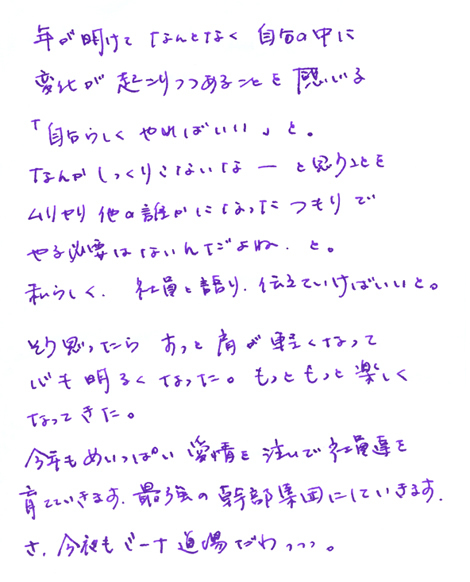 年が明けて なんとなく 自分の中に
変化が 起こりつつあることを 感じる
「自分らしく やればいい」と。
なんか しっくりこないな ー と思うことを
ムリやり 他の誰かになったつもりで
やる必要はないんだよね、と。
私らしく、社員と語り、伝えていけばいいと。
そう思ったら すっと肩が軽くなって
心も明るくなった。もっともっと楽しく
なってきた。
今年もめいっぱい 愛情を注いで社員達を
育てていきます、最強の幹部集団にしていきます、
さ、今夜もビーナ道場だわっっっ。